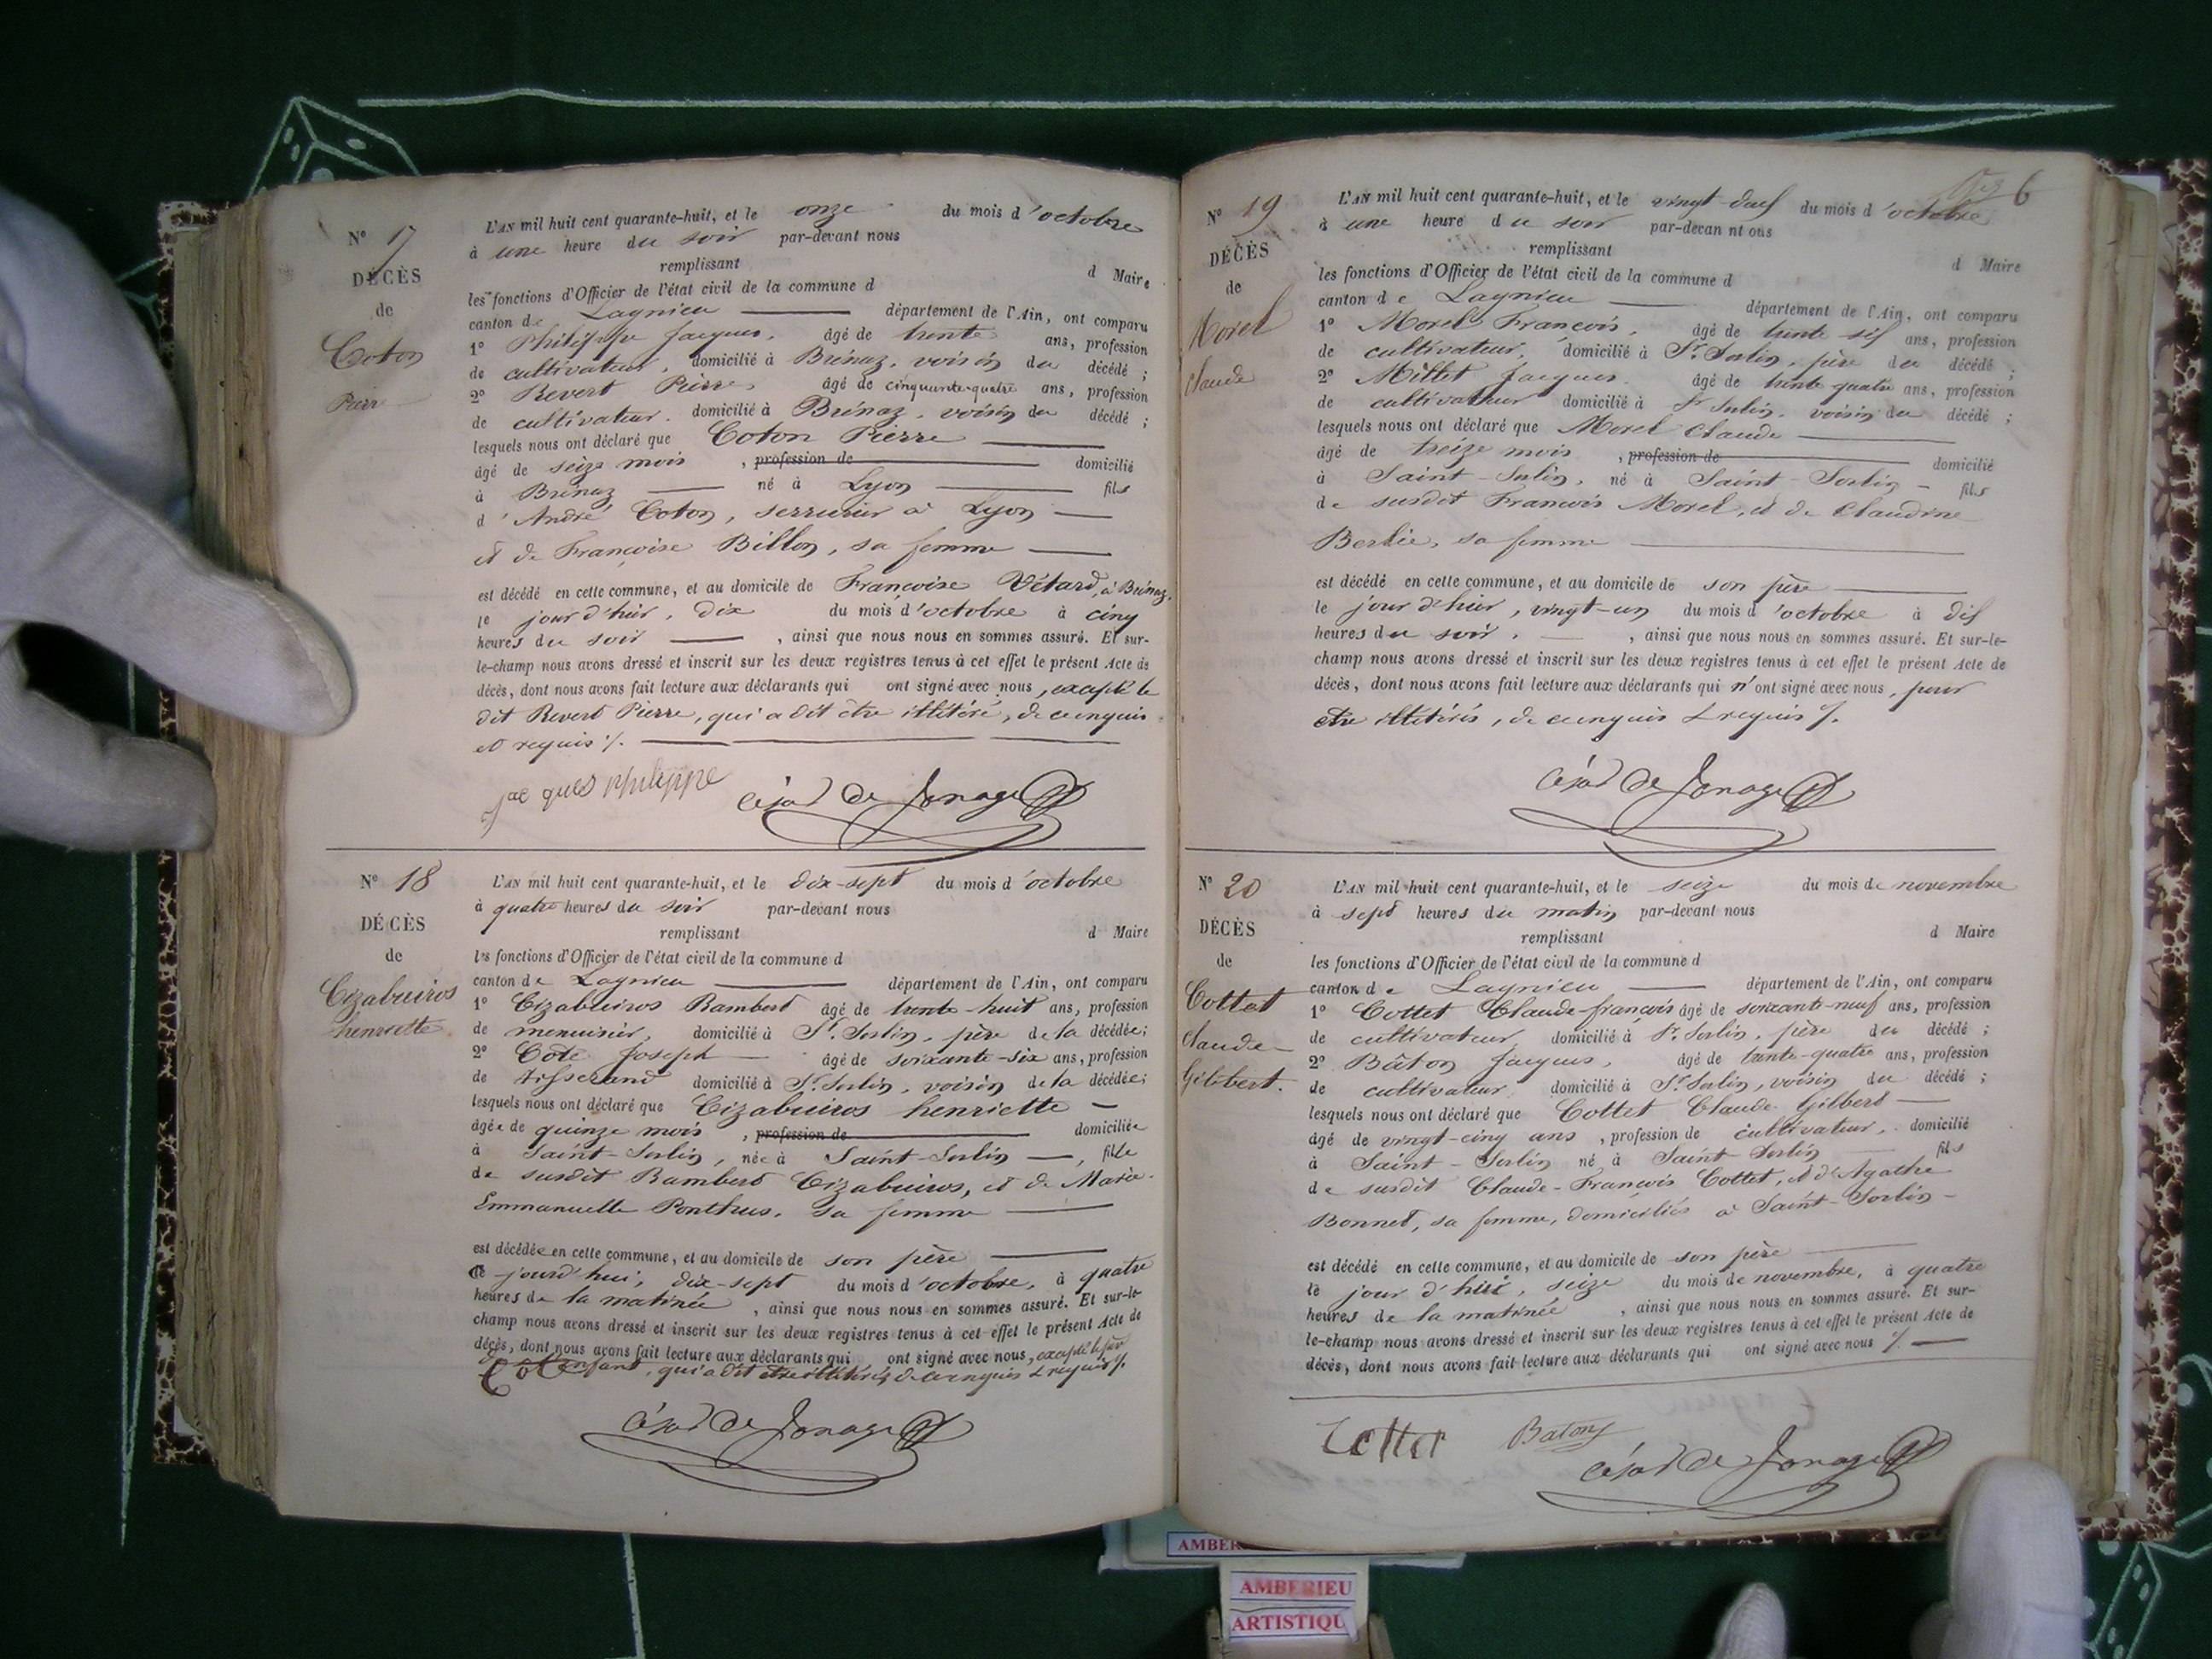 N° 17
DÉCÈS
de
Coton
Pierre
L'AN mil huit cent quarante-huit, et le onze du mois d'octobre
à une heure du soir par-devant nous
remplissant d Maire
les fonctions d'Officier de l'état civil de la commune d
canton de Lagnieu département de l'Ain, ont comparu
1° Philippe Jacques, âgé de trente ans, profession
de cultivateur, domicilié à Brénaz, voisin du décédé ;
2° Revert Pierre, âgé de cinquante-quatre ans, profession
de cultivateur. domicilié à Brénaz, voisin du décédé ;
lesquels nous ont déclaré que Coton Pierre
âgé de seize mois , profession de domicilié
à Brénaz né à Lyon fils
d'André Coton, serrurier à Lyon
et de Françoise Billon, sa femme
est décédé en cette commune, et au domicile de Francoise Vétard, à Brénaz,
le jour d'hier, dix du mois d'octobre à cinq
heures du soir , ainsi que nous nous en sommes assuré. Et sur-
le-champ nous avons dressé et inscrit sur les deux registres tenus à cet effet le présent Acte de
décès, dont nous avons fait lecture aux déclarants qui ont signé avec nous, excepté le
dit Revert Pierre, qui a dit être illétéré, de ce enquis
et requis ./.
jacques philippe César de Jonage
N° 18
DÉCÈS
de
Cizabuiros
henriette
L'AN mil huit cent quarante-huit, et le dix-sept du mois d'octobre
à quatre heures du soir par-devant nous
remplissant d Maire
les fonctions d'Officier de l'état civil de la commune d
canton de Lagnieu département de l'Ain, ont comparu
1° Cizabuiros Rambert âgé de trente-huit ans, profession
de menuisier, domicilié à St. Sorlin, père de la décédée;
2° Cote Joseph âgé de soixante-six ans, profession
de tisserand domicilié à St. Sorlin, voisin de la décédée;
lesquels nous ont déclaré que Cizabuiros henriette
âgée de quinze mois , profession de domiciliée
à Saint-Sorlin, née à Saint-Sorlin , fille
de susdit Rambert Cizabuiros, et de Marie-
Emmanuelle Ponthus, sa femme
est décédée en cette commune, et au domicile de son père
ce jourd'hui, dix-sept du mois d'octobre, à quatre
heures de la matinée , ainsi que nous nous en sommes assuré. Et sur-le-
champ nous avons dressé et inscrit sur les deux registres tenus à cet effet le présent Acte de
décès, dont nous avons fait lecture aux déclarants qui ont signé avec nous, excepté le père
de l'enfant, qui a dit être illétéré, de ce enquis & requis ./.
César de Jonage
6
N° 19
DÉCÈS
de
Morel
Claude
L'AN mil huit cent quarante-huit, et le vingt-deux du mois d'octobre
à une heure du soir par-devan nt ous
remplissant d Maire
les fonctions d'Officier de l'état civil de la commune d
canton de Lagnieu département de l'Ain, ont comparu
1° Morel François, âgé de trente six ans, profession
de cultivateur, domicilié à St. Sorlin, père du décédé ;
2° Millet Jacques âgé de trente quatre ans, profession
de cultivateur domicilié à St Sorlin, voisin du décédé ;
lesquels nous ont déclaré que Morel Claude
âgé de treize mois , profession de domicilié
à Saint-Sorlin, né à Saint-Sorlin fils
de susdit Francois Morel, et de Claudine
Berlie, sa femme
est décédé en cette commune, et au domicile de son père
le jour d'hier, vingt-un du mois d'octobre à dix
heures du soir, , ainsi que nous nous en sommes assuré. Et sur-le-
champ nous avons dressé et inscrit sur les deux registres tenus à cet effet le présent Acte de
décès, dont nous avons fait lecture aux déclarants qui n'ont signé avec nous, pour
être illétérés, de ce enquis & requis ./.
César de Jonage
N° 20
DÉCÈS
de
Cottet
Claude-
Gilbert.
L'AN mil huit cent quarante-huit, et le seize du mois de novembre
à sept heures du matin par-devant nous
remplissant d Maire
les fonctions d'Officier de l'état civil de la commune d
canton de Lagnieu département de l'Ain, ont comparu
1° Cottet Claude-françois âgé de soixante-neuf ans, profession
de cultivateur, domicilié à St. Sorlin, père du décédé ;
2° Bâton Jacques, âgé de trente-quatre ans, profession
de cultivateur domicilié à St. Sorlin, voisin du décédé ;
lesquels nous ont déclaré que Cottet Claude-Gilbert
âgé de vingt-cinq ans , profession de cultivateur, domicilié
à Saint-Sorlin né à Saint-Sorlin fils
de susdit Claude-François Cottet, et d'Agathe
Bonnet, sa femme, domiciliés à Saint-Sorlin
est décédé en cette commune, et au domicile de son père
le jour d'hui, seize du mois de novembre, à quatre
heures de la matinée , ainsi que nous nous en sommes assuré. Et sur-
le-champ nous avons dressé et inscrit sur les deux registres tenus à cet effet le présent Acte de
décès, dont nous avons fait lecture aux déclarants qui ont signé avec nous ./.
Cottet Baton César de Jonage
AMBERIEU
ARTISTIQU